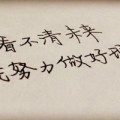 看不清未来
努力做好